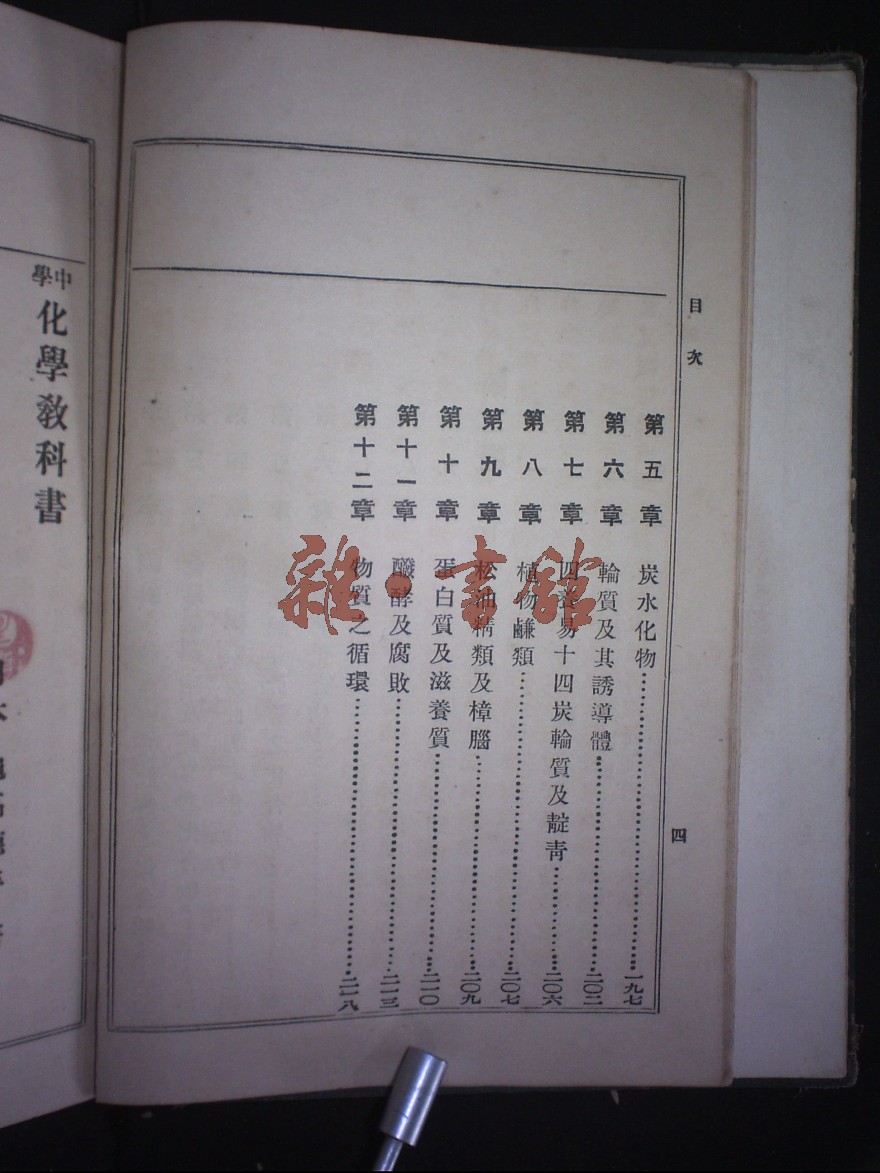 目次
四
第五章 炭水化物……一九七
第六章 輪質及其誘導體……二〇二
第七章 四養易十四炭輪質及靛靑……二〇六
第八章 植物鹻類……二〇七
第九章 松油精類及樟腦……二〇九
第十章 蛋白質及滋養質……二一〇
第十一章 醱酵及腐敗……二一三
第十二章 物質之循環……二一八
中學 化學教科書
雜·書館